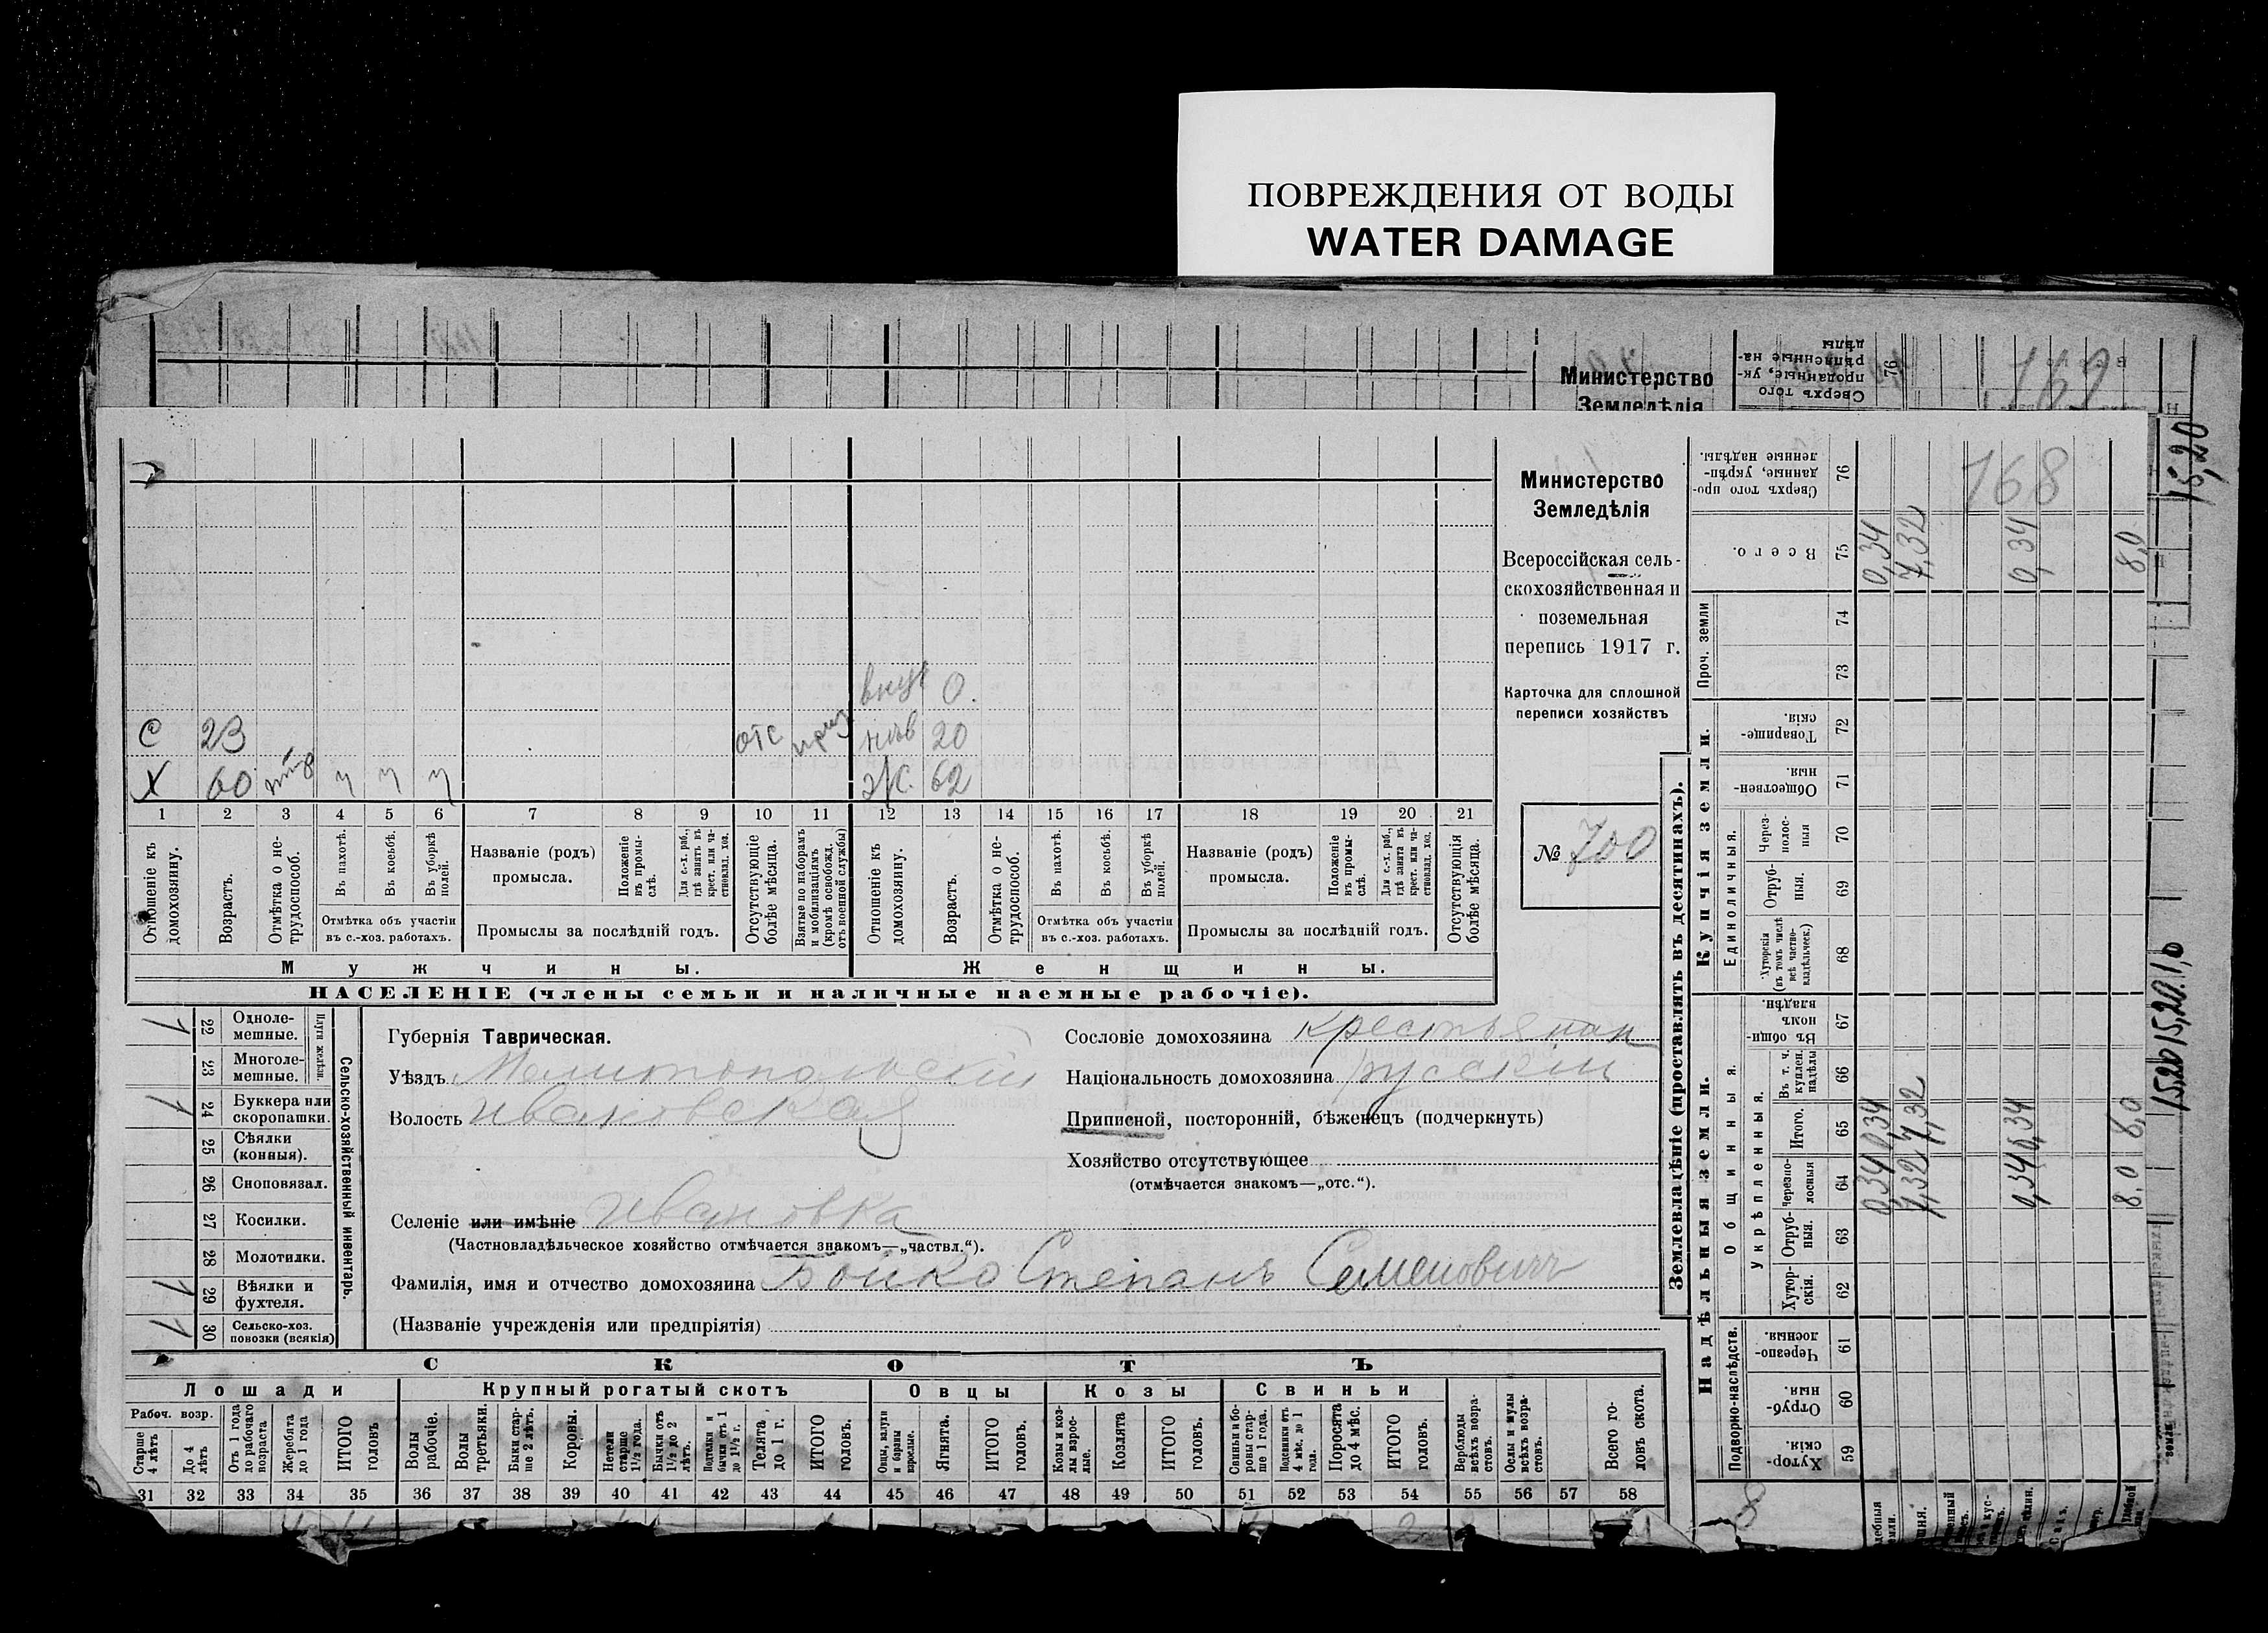 ПОВРЕЖДЕНИЯ ОТ ВОДЫ
WATER DAMAGE
Министерство
Земледѣлія
Сверхъ того
проданные, ук-
рѣпленные на-
дѣлы
76
169
15,20
15,20 15,20 1,0
168
Министерство
Земледѣлія
Всероссійская сель-
скохозяйственная и
поземельная
перепись 1917 г.
Карточка для сплошной
переписи хозяйствъ
№ 700
внук 0.
С 23 отс 20
Х 60 ч ч ч ж. 62
1 2 3 4 5 6 7 8 9 10 11 12 13 14 15 16 17 18 19 20 21
Отношеніе къ домохозяину.
Возрастъ.
Отмѣтка о не-трудоспособ.
Въ пахотѣ.
Въ косьбѣ.
Въ уборкѣ полей.
Отмѣтка объ участіи
въ с.-хоз. работахъ.
Названіе (родъ)
промысла.
Положеніе въ промы-слѣ.
Для с.-х. раб., гдѣ занятъ въ крест. или ча-стновлад. хоз.
Промыслы за послѣдній годъ.
Отсутствующіе болѣе мѣсяца.
Взятые по наборамъ и мобилизаціямъ (кромѣ освобожд. отъ военной службы)
Отношеніе къ домохозяину.
Возрастъ.
Отмѣтка о не-трудоспособ.
Въ пахотѣ.
Въ косьбѣ.
Въ уборкѣ полей.
Отмѣтка объ участіи
въ с.-хоз. работахъ.
Названіе (родъ)
промысла.
Положеніе въ промы-слѣ.
Для с.-х. раб., гдѣ занята въ крест. или ча-стновлад. хоз.
Промыслы за послѣдній годъ.
Отсутствующія болѣе мѣсяца.
Мужчины. Женщины.
НАСЕЛЕНІЕ (члены семьи и наличные наемные рабочіе).
Сельско-хозяйственный инвентарь.
Плуги желѣзн.
1 22 Одноле-мешные.
23 Многоле-мешные.
1 24 Буккера или скоропашки.
25 Сѣялки (конныя).
26 Сноповязал.
27 Косилки.
28 Молотилки.
1 29 Вѣялки и фухтеля.
1 30 Сельско-хоз. повозки (всякія)
Губернія Таврическая.
Уѣздъ Мелитопольскій
Волость Ивановская
Селеніе или имѣніе Ивановка
(Частновладѣльческое хозяйство отмѣчается знакомъ—„частвл.“).
Фамилія, имя и отчество домохозяина Бойко Степанъ Семеновичъ
(Названіе учрежденія или предпріятія)
Сословіе домохозяина крестьянин
Національность домохозяина русскій
Приписной, посторонній, бѣженецъ (подчеркнуть)
Хозяйство отсутствующее
(отмѣчается знакомъ—„отс.“).
СКОТЪ
Лошади Крупный рогатый скотъ Овцы Козы Свиньи
Рабоч. возр.
Старше 4 лѣтъ
До 4 лѣтъ
Отъ 1 года до рабочаго возраста
Жеребята до 1 года
ИТОГО головъ
Волы рабочіе.
Волы третьяки.
Быки стар-ше 2 лѣтъ.
Коровы.
Нетели старше 1½ года.
Бычки отъ 1½ до 2 лѣтъ.
Подтелки и бычки отъ 1 до 1½ г.
Телята до 1 г.
ИТОГО головъ.
Овцы, валухи и бараны взрослые.
Ягнята.
ИТОГО головъ.
Козы и коз-лы взрос-лые.
Козлята
ИТОГО головъ.
Свиньи и бо-ровы стар-ше 1 года.
Подсвинки отъ 4 мѣс. до 1 года.
Поросята до 4 мѣс.
ИТОГО головъ.
Верблюды всѣхъ возра-стовъ.
Ослы и мулы всѣхъ возра-стовъ.
Всего го-ловъ скота.
31 32 33 34 35 36 37 38 39 40 41 42 43 44 45 46 47 48 49 50 51 52 53 54 55 56 57 58
2
Землевладѣніе (проставлять въ десятинахъ).
Купчія земли.
Надѣльныя земли.
Проч. земли
Единоличныя.
Общинныя.
Укрѣпленныя.
Подворно-наслѣдств.
Сверхъ того про-данные, укрѣп-ленные надѣлы. 76
Всего. 75 0,34 7,32 0,34 8,0
74
73
Товарище-скія. 72
Обществен-ныя. 71
Через-полос-ныя 70
Отруб-ныя. 69
Хуторскія (въ томъ числѣ всѣ частно-владѣльческ.) 68
Въ общин-номъ владѣн. 67
Въ т. ч. куплен. надѣлы 66
Итого. 65 0,34 7,32 0,34 8,0
Черезпо-лосныя 64 0,34 7,32 0,34 8,0
Отруб-ныя. 63
Хутор-скія. 62
Черезпо-лосныя. 61
Отруб-ныя. 60
Хутор-скія. 59